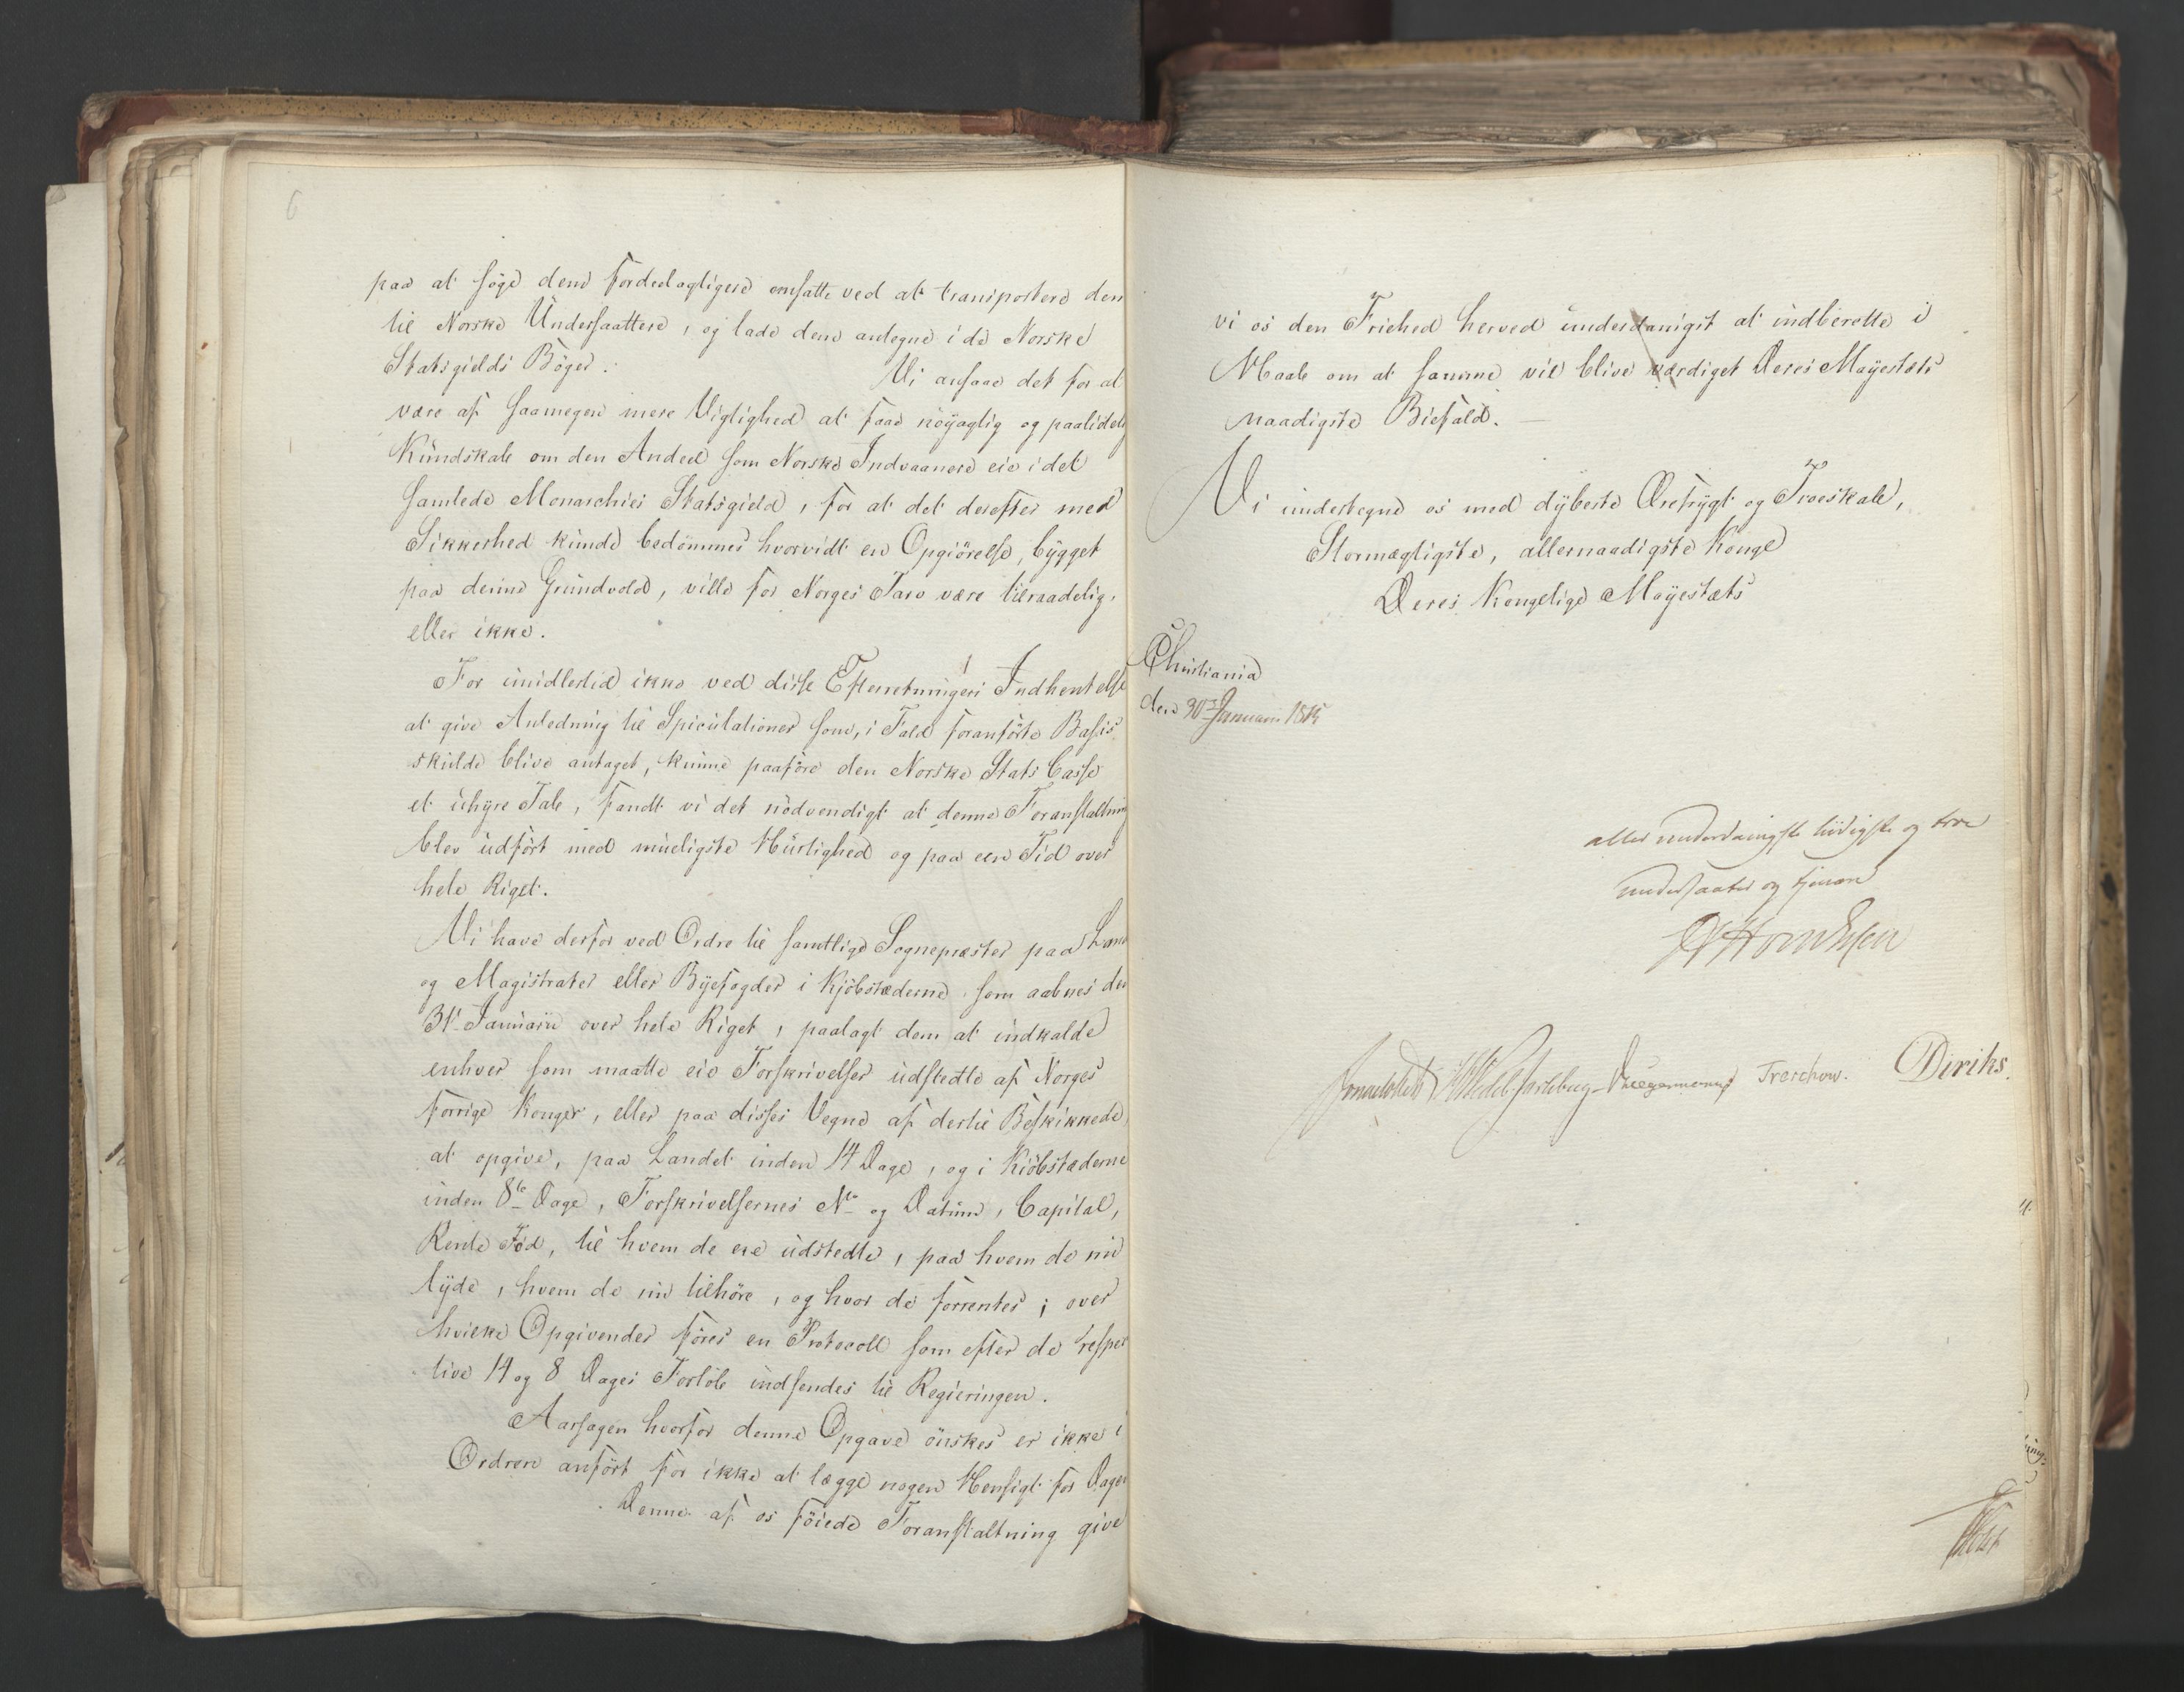 6
paa at søge dem fordeelagtigere omsatte ved at transportere dem
til Norske Undersaattere, og lade dem antegne i de Norske
Statsgields Bøger.
Vi ansaae det for at
være af saamegen mere Vigtighed at faae nøyagtig og paalidelig
Kundskab om den Andeel som Norske Indvaanere eie i det
samlede Monarchies Statsgield, for at det derefter med
Sikkerhed kunde bedømmes hvorvidt en Opgiørelse, bygget
paa denne Grundvold, ville for Norges Tarv være tilraadelig,
eller ikke.
For imidlertid ikke ved disse Efterretningers Indhentelse
at give Anledning til Speculationer som, i Fald foranførte Basis
skulde blive antaget, kunne paaføre den Norske Stats Casse
et uhyre Tab, fandt vi det nødvendigt at denne Foranstaltning
blev udført med mueligste Hurtighed og paa een Tid over
hele Riget.
Vi have derfor ved Ordre til samtlige Sognepræster paa Land
og Magistrater eller Byefogder i Kjøbstæderne som aabnes den
31te Januarii over hele Riget, paalagt dem at indkalde
enhver som maatte eie Forskrivelser udstedte af Norges
forrige Konger, eller paa disses Vegne af dertil Beskikkede,
at opgive, paa Landet inden 14 Dage, og i Kiøbstæderne
inden 8te Dage, Forskrivelsernes No og Datum, Capital,
Rente Fod, til hvem de ere udstedte, paa hvem de nu
lyde, hvem de nu tilhøre, og hvor de forrentes; over
hvilke Opgivender føres en Protocoll som efter de respec
tive 14 og 8 Dages Forløb indsendes til Regieringen.
Aarsagen hvorfor denne Opgave ønskes er ikke i
Ordren anført for ikke at lægge nogen Hensigt for Dagen
Denne af os føiede Foranstaltning give
vi os den Friehed herved underdanigst at indberette i
Haab om at samme vil blive værdiget Deres Mayestæts
naadigste Biefald. —
Vi undertegne os med dybeste Ærefrygt og Troeskab,
Stormægtigste, allernaadigste Konge
Deres Kongelige Mayestæts
Christiania
den 30te Januarii 1815
allerunderdanigste lydigste og troe
undersaatter og tjenere
Sommerhielm HWedel Jarlsberg Treschow. Diriks.
Holst